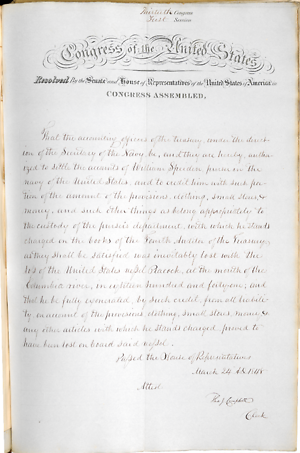 Thirtieth Congress
First Session
Congress of the United States,
Resolved By the Senate and House of Representatives of the United States of America in
CONGRESS ASSEMBLED,
That the accounting officers of the treasury, under the direct-
ion of the Secretary of the Navy be, and they are hereby, autho-
rized to settle the accounts of William Speiden, purser in the
navy of the United States, and to credit him with such por-
tion of the amount of the provisions, clothing, small stores,
money, and such other things as belong appropriately to
the custody of the purser's department, with which he stands
charged on the books of the Fourth Auditor of the Treasury,
as they shall be satisfied was inevitably lost with the
of the United States Peacock, at the mouth of the
Columbia river, in eighteen hundred and forty-one; and
that he be fully exonerated, by such credit, from all liabili-
ty on account of the provisions, clothing, small stores, money &
any other articles with which he stands charged, proved to
have been lost on board said vessel.
Passed the House of Representatives
March 24 AD 1848
Attest
Tho J Campbell
Clerk